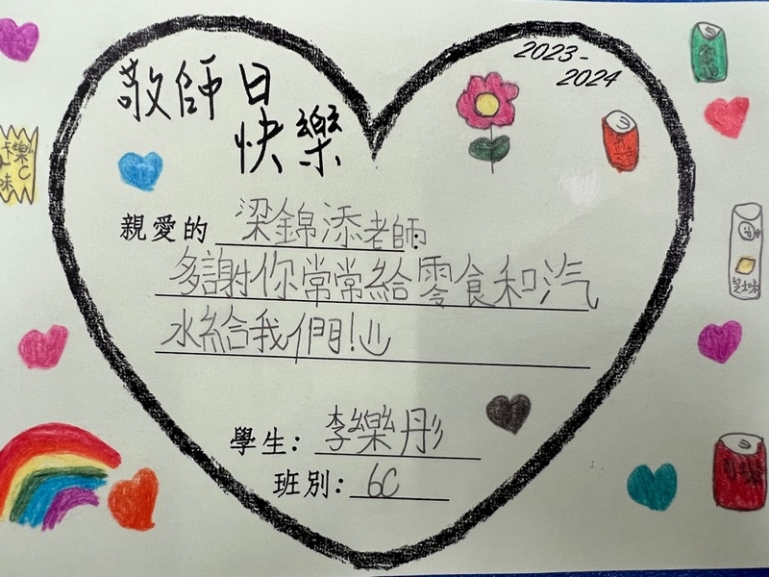 敬師日
快樂
2023-
2024
親愛的 梁錦添老師:
多謝你常常給零食和汽
水給我們!
學生: 李樂彤
班別: 6C